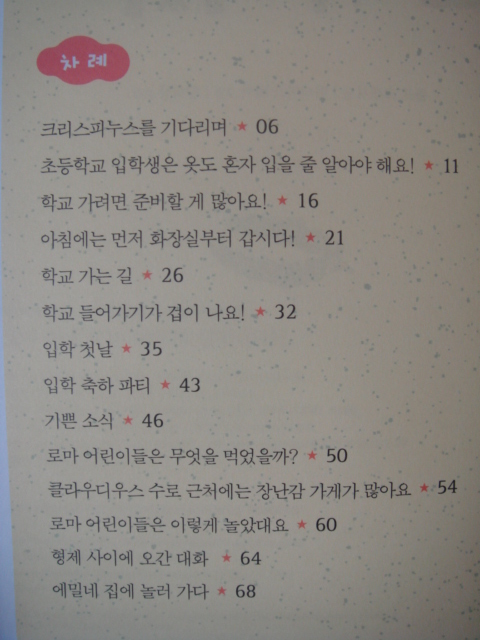 차례
크리스피누스를 기다리며 ★ 06
초등학교 입학생은 옷도 혼자 입을 줄 알아야 해요! ★ 11
학교 가려면 준비할 게 많아요! ★ 16
아침에는 먼저 화장실부터 갑시다! ★ 21
학교 가는 길 ★ 26
학교 들어가기가 겁이 나요! ★ 32
입학 첫날 ★ 35
입학 축하 파티 ★ 43
기쁜 소식 ★ 46
로마 어린이들은 무엇을 먹었을까? ★ 50
클라우디우스 수로 근처에는 장난감 가게가 많아요 ★ 54
로마 어린이들은 이렇게 놀았대요 ★ 60
형제 사이에 오간 대화 ★ 64
에밀네 집에 놀러 가다 ★ 68